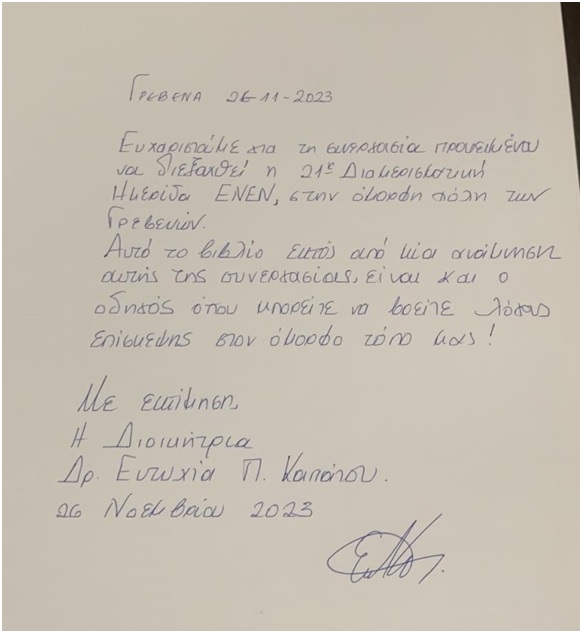 ΓΡΕΒΕΝΑ 26-11-2023
Ευχαριστούμε για τη συνεργασία προκειμένου
να διεξαχθεί η 21η Διαμερισματική
Ημερίδα ΕΝΕΝ, στην όμορφη πόλη των
Γρεβενών.
Αυτό το βιβλίο εκτός από μία ανάμνηση
αυτής της συνεργασίας, είναι και ο
οδηγός όπου μπορείτε να βρείτε λόγους
επίσκεψης στον όμορφο τόπο μας!
Με εκτίμηση,
Η Διοικήτρια
Δρ. Ευτυχία Π.
26 Νοεμβρίου 2023